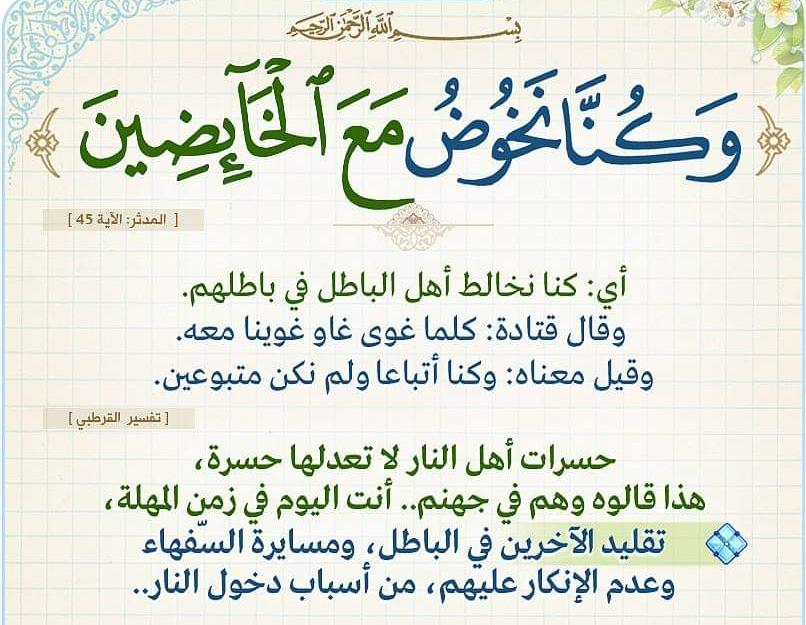 بِسْمِ اللَّهِ الرَّحْمَٰنِ الرَّحِيمِ
وَكُنَّا نَخُوضُ مَعَ ٱلْخَآئِضِينَ
[ المدثر: الآية 45 ]
أي: كنا نخالط أهل الباطل في باطلهم.
وقال قتادة: كلما غوى غاو غوينا معه.
وقيل معناه: وكنا أتباعا ولم نكن متبوعين.
[ تفسير القرطبي ]
حسرات أهل النار لا تعدلها حسرة،
هذا قالوه وهم في جهنم.. أنت اليوم في زمن المهلة،
تقليد الآخرين في الباطل، ومسايرة السّفهاء
وعدم الإنكار عليهم، من أسباب دخول النار..